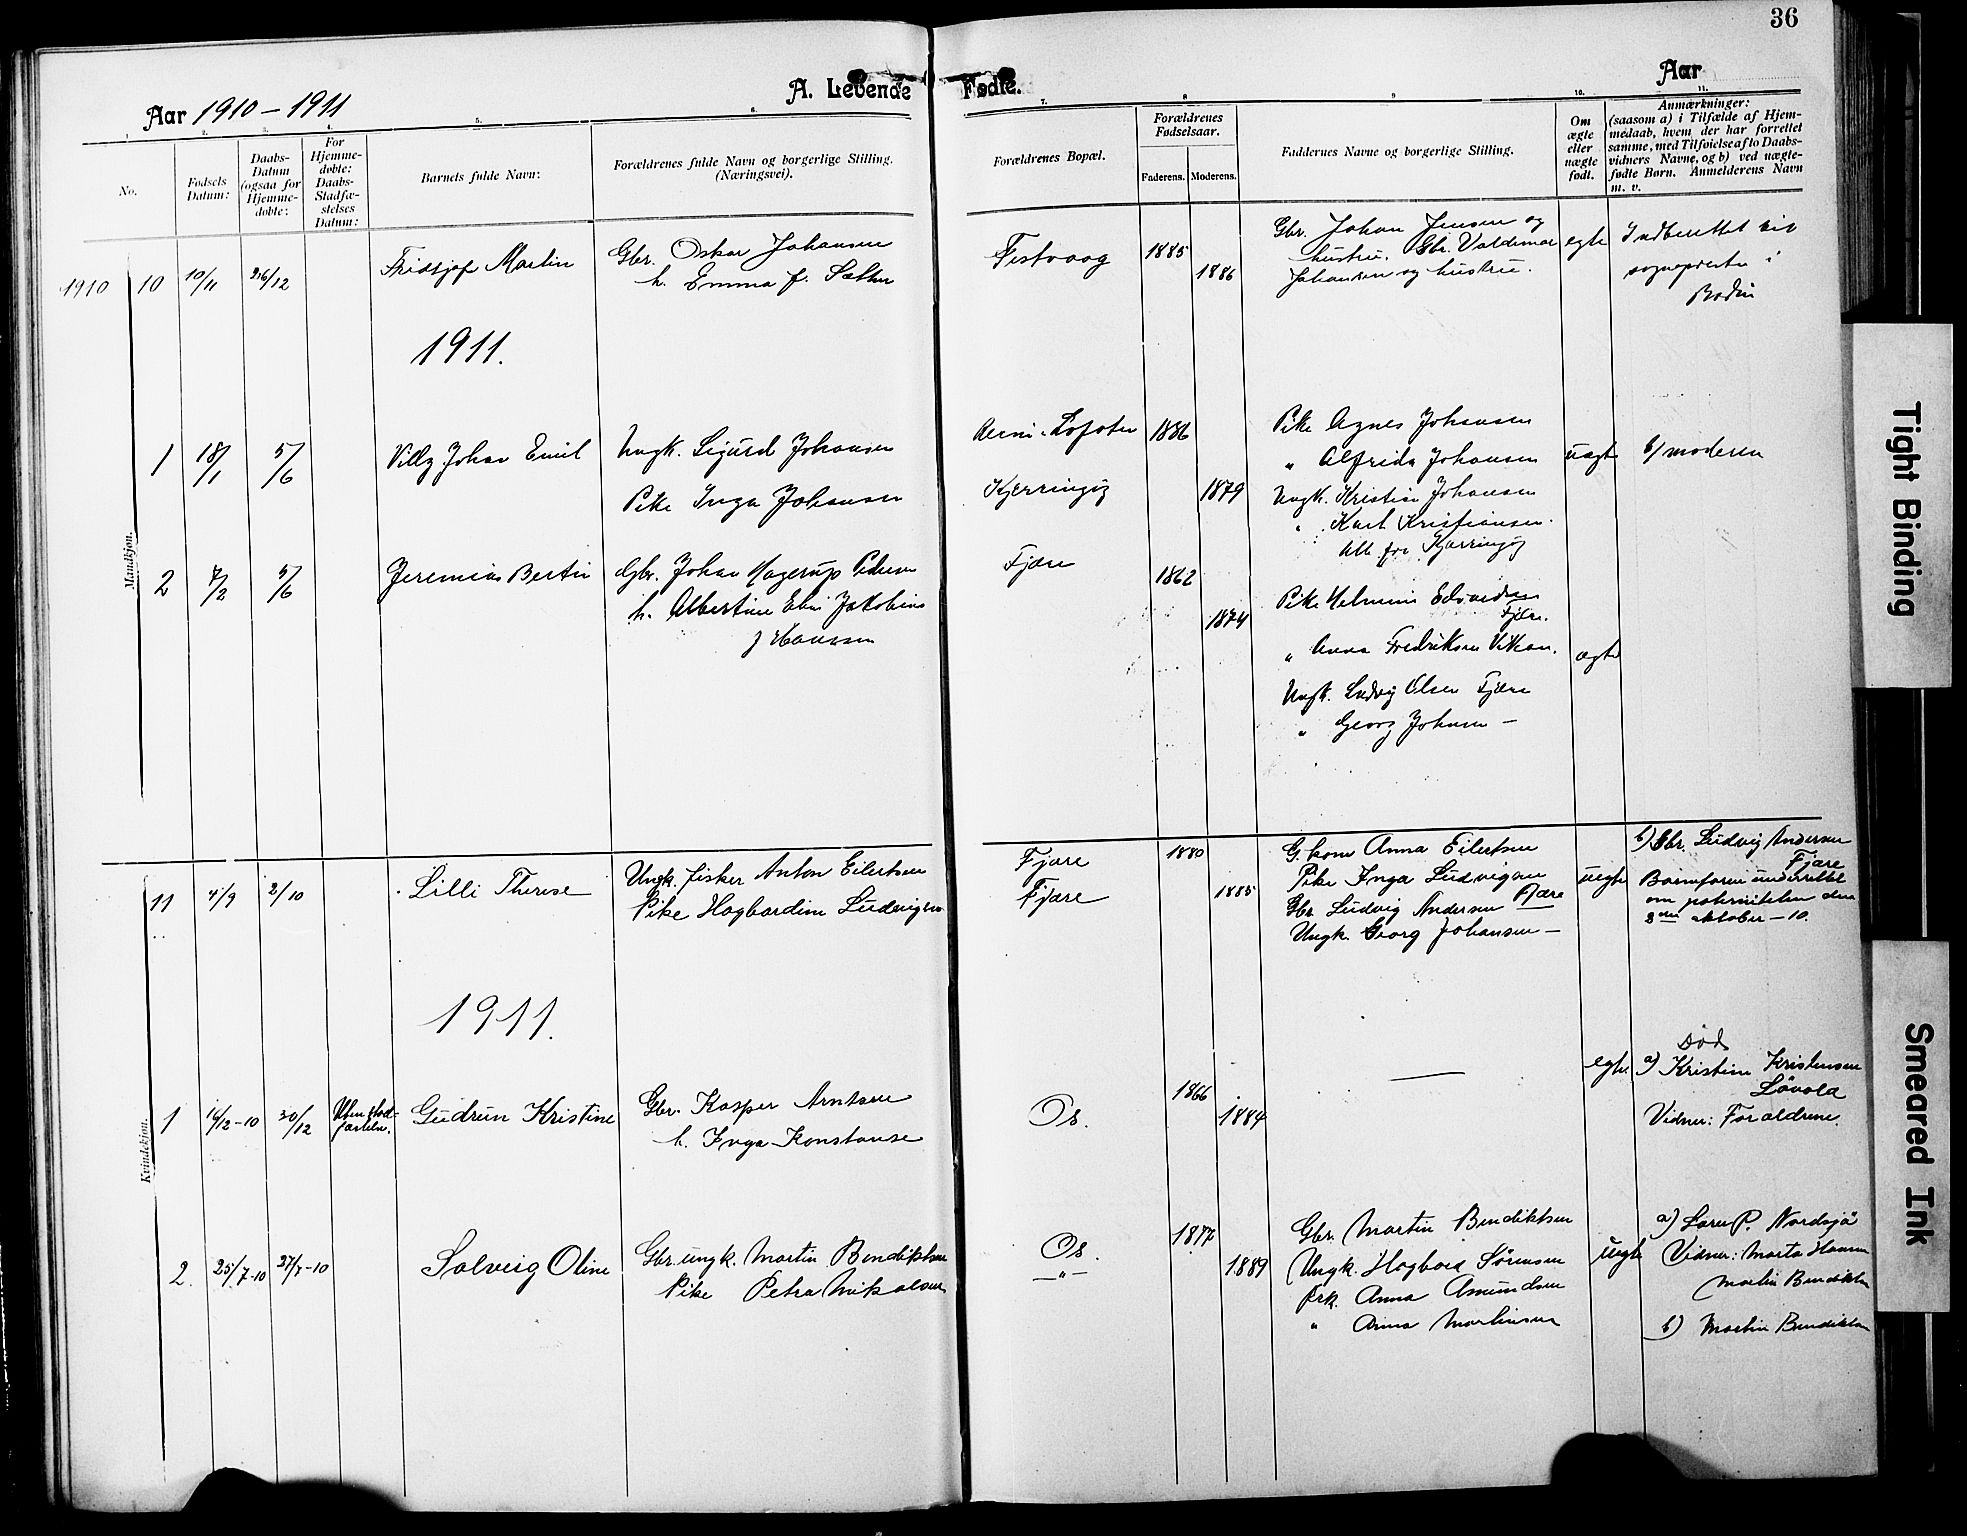 36
Aar 1910-1911
A. Levende Fødte.
Aar
1.
2.
3.
4.
5.
6.
7.
8
9
10.
11.
No.
Fødsels Datum:
Daabs-Datum (ogsaa for Hjemme-døbte:
For Hjemme-døbte: Daabs-Stadfæ-stelses Datum:
Barnets fulde Navn:
Forældrenes fulde Navn og borgerlige Stilling. (Næringsvei).
Forældrenes Bopæl.
Forældrenes Fødselsaar.
Faderens. Moderens.
Faddernes Navne og borgerlige Stilling.
Om ægte eller uægte født.
Anmærkninger:
(saasom a) i Tilfælde af Hjem-
medaab, hvem der har forrettet
samme, med Tilføielse af to Daabs-
vidners Navne, og b) ved uægte-
fødte Børn. Anmelderens Navn
m. v.
Mandkjøn.
1910 10 10/11 26/12 Fridtjof Martin
Gbr. Oskar Johansen
h. Emma f. Sæther
Festvaag 1885
1886
Gbr. Johan Jensen og
hustru. Gbr. Valdemar
Johansen og hustru.
egte
Indberettet til
sognepresten i
Bodin
1911.
1 18/1 5/6 Villy Johan Emil
Ungk. Sigurd Johansen
Pike Inga Johansen
Lofoten 1886
Kjerringøy 1879
Pike Agnes Johansen
" Alfrida Johansen
Ungk. Kristian Johansen
" Karl Kristiansen.
Alle fra Kjærringøy
uægte
b/ moderen
2 7/2 5/6 Jeremias Bertin
Gbr. Johan Hagerup Pedersen
h. Albertine Jakobine
f Hanssen
Fjære 1862
1874
Pike Helmine Edvardsen
Fjære.
" Anna Fredriksen
Ungk. Ludvig Olsen Fjære
" Georg Johnsen —
ægte
11 4/9 2/10 Lilli Therese
Ungk. fisker Anton Eilertsen
Pike Hagbardine Ludvigsen
Fjære 1880
Fjære 1885
G. kone Anna Eilertsen
Pike Inga Ludvigsen
Gbr. Ludvig Andersen Fjære
Ungk. Georg Johansen —
uegte
b) Gbr. Ludvig Andersen
Fjære
Barnefaren underrettet
om paterniteten den
8de oktober - 10.
1911.
Kvindekjøn.
1 /12-10 30/12
Gudrun Kristine
Gbr. Kasper Arntsen
h. Inga Konstanse
Os. 1866
1884
—
egte
Død
a) Kristine Kristensen
Løvold
Vidner: Forældrene.
2. 25/7-10 27/7-10 Solveig Oline
Gbr. ungk. Martin Bendiktsen
Pike Petra Mikalsen
Os. 1877
—"— 1889
Gbr. Martin Bendiktsen
Ungk. Hagbart Sørensen
Frk. Anna Amundsen
" Anna Martinsen
uegte
a) Lars P. Nordsjø
Vidner: Marta Hansen
Martin Bendiktsen
b) Martin Bendiktsen
Tight Binding
Smeared Ink